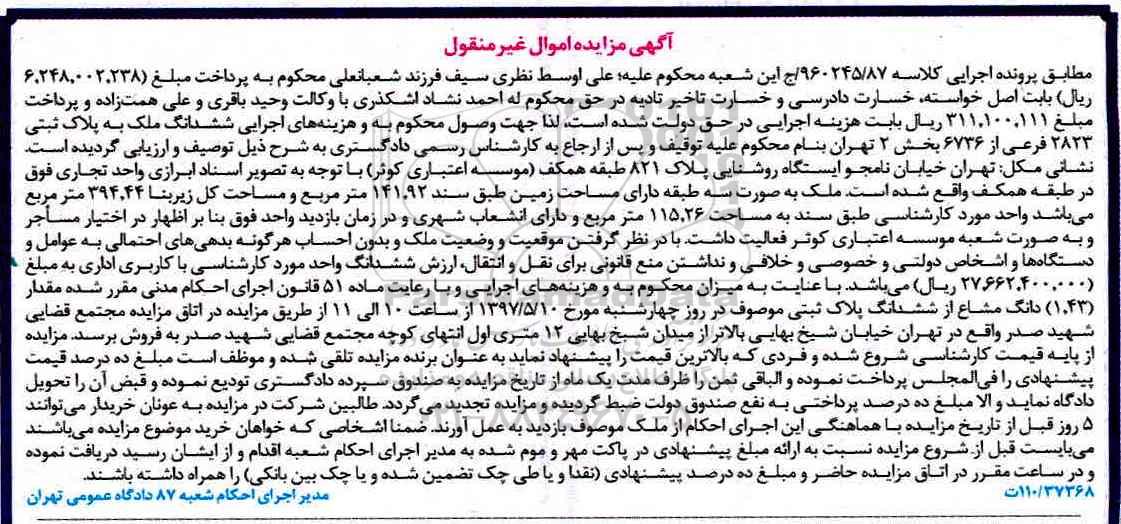 آگهی مزایده اموال غیر منقول
مطابق پرونده اجرایی کلاسه ۹۶۰۲۴۵/۸۷/ج این شعبه محکوم علیه؛ علی اوسط نظری سیف فرزند شعبانعلی محکوم به پرداخت مبلغ (۶،۲۴۸،۰۰۲،۲۳۸
ریال) بابت اصل خواسته، خسارت دادرسی و خسارت تاخیر تادیه در حق محکوم له احمد نشاد اشکذری با وکالت وحید باقری و علی همت‌زاده و پرداخت
مبلغ ۳۱۱،۱۰۰،۱۱۱ ریال بابت هزینه اجرایی در حق دولت شده است، لذا جهت وصول محکوم به و هزینه‌های اجرایی ششدانگ ملک به پلاک ثبتی
۲۸۲۳ فرعی از ۶۷۳۶ بخش ۲ تهران بنام محکوم علیه توقیف و پس از ارجاع به کارشناس رسمی دادگستری به شرح ذیل توصیف و ارزیابی گردیده است.
نشانی مکل: تهران خیابان نامجو ایستگاه روشنایی پلاک ۸۲۱ طبقه همکف (موسسه اعتباری کوثر) با توجه به تصویر اسناد ابرازی واحد تجاری فوق
در طبقه همکف واقع شده است. ملک به صورت سه طبقه دارای مساحت زمین طبق سند ۱۴۱،۹۲ متر مربع و مساحت کل زیربنا ۳۹۴،۴۴ متر مربع
می‌باشد واحد مورد کارشناسی طبق سند به مساحت ۱۱۵،۲۶ متر مربع و دارای انشعاب شهری و در زمان بازدید واحد فوق بنا بر اظهار در اختیار مستأجر
و به صورت شعبه موسسه اعتباری کوثر فعالیت داشت. با در نظر گرفتن موقعیت و وضعیت ملک و بدون احساب هرگونه بدهی‌های احتمالی به عوامل و
دستگاه‌ها و اشخاص دولتی و خصوصی و خلافی و نداشتن منع قانونی برای نقل و انتقال، ارزش ششدانگ واحد مورد کارشناسی با کاربری اداری به مبلغ
(۲۷،۶۶۲،۴۰۰،۰۰۰ ریال) می‌باشد. با عنایت به میزان محکوم به و هزینه‌های اجرایی و با رعایت ماده ۵۱ قانون اجرای احکام مدنی مقرر شده مقدار
(۱،۴۳) دانگ مشاع از ششدانگ پلاک ثبتی موصوف در روز چهارشنبه مورخ ۱۳۹۷/۵/۱۰ از ساعت ۱۰ الی ۱۱ از طریق مزایده در اتاق مزایده مجتمع قضایی
شهید صدر واقع در تهران خیابان شیخ بهایی بالاتر از میدان شیخ بهایی ۱۲ متری اول انتهای کوچه مجتمع قضایی شهید صدر به فروش برسد. مزایده
از پایه قیمت کارشناسی شروع شده و فردی که بالاترین قیمت را پیشنهاد نماید به عنوان برنده مزایده تلقی شده و موظف است مبلغ ده درصد قیمت
پیشنهادی را فی‌المجلس پرداخت نموده و الباقی ثمن را ظرف مدت یک ماه از تاریخ مزایده به صندوق سپرده دادگستری تودیع نموده و قبض آن را تحویل
دادگاه نماید و الا مبلغ ده درصد پرداختی به نفع صندوق دولت ضبط گردیده و مزایده تجدید می‌گردد. طالبین شرکت در مزایده به عونان خریدار می‌توانند
۵ روز قبل از تاریخ مزایده با هماهنگی این اجرای احکام از ملک موصوف بازدید به عمل آورند. ضمنا اشخاصی که خواهان خرید موضوع مزایده می‌باشند
می‌بایست قبل از شروع مزایده نسبت به ارائه مبلغ پیشنهادی در پاکت مهر و موم شده به مدیر اجرای احکام شعبه اقدام و از ایشان رسید دریافت نموده
و در ساعت مقرر در اتاق مزایده حاضر و مبلغ ده درصد پیشنهادی (نقدا و یا طی چک تضمین شده و یا چک بین بانکی) را همراه داشته باشند.
۱۱۰/۳۷۳۶۸ت مدیر اجرای احکام شعبه ۸۷ دادگاه عمومی تهران